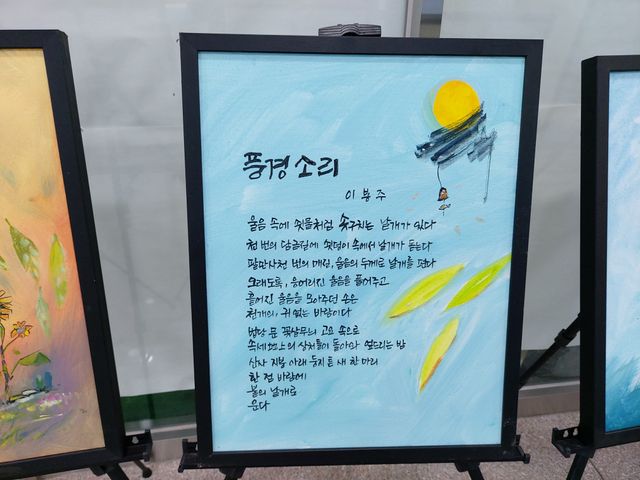 풍경소리
이봉주
울음 속에 쇳물처럼 솟구치는 날개가 있다
천 번의 담금질에 쇳덩이 속에서 날개가 돋는다
팔만사천 번의 매질, 울음의 두께로 날개를 편다
오래도록, 응어리진 울음을 풀어주고
흩어진 울음을 모아주던 손은
천개의, 귀 없는 바람이다
법당 문 꽃살무늬 고요 속으로
속세의 상처들이 돌아와 엎드리는 밤
산사 지붕 아래 둥지 튼 새 한 마리
한 점 바람에
불의 날개로
운다